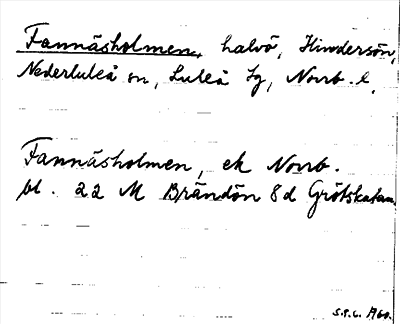 Fannäsholmen, halvö, Hindersön,
Nederluleå sn, Luleå lg, Norrb. l.
Fannäsholmen, ek Norrb.
bl. 22 M Brändön 8d Grötskatan
S.P.L. 1960.